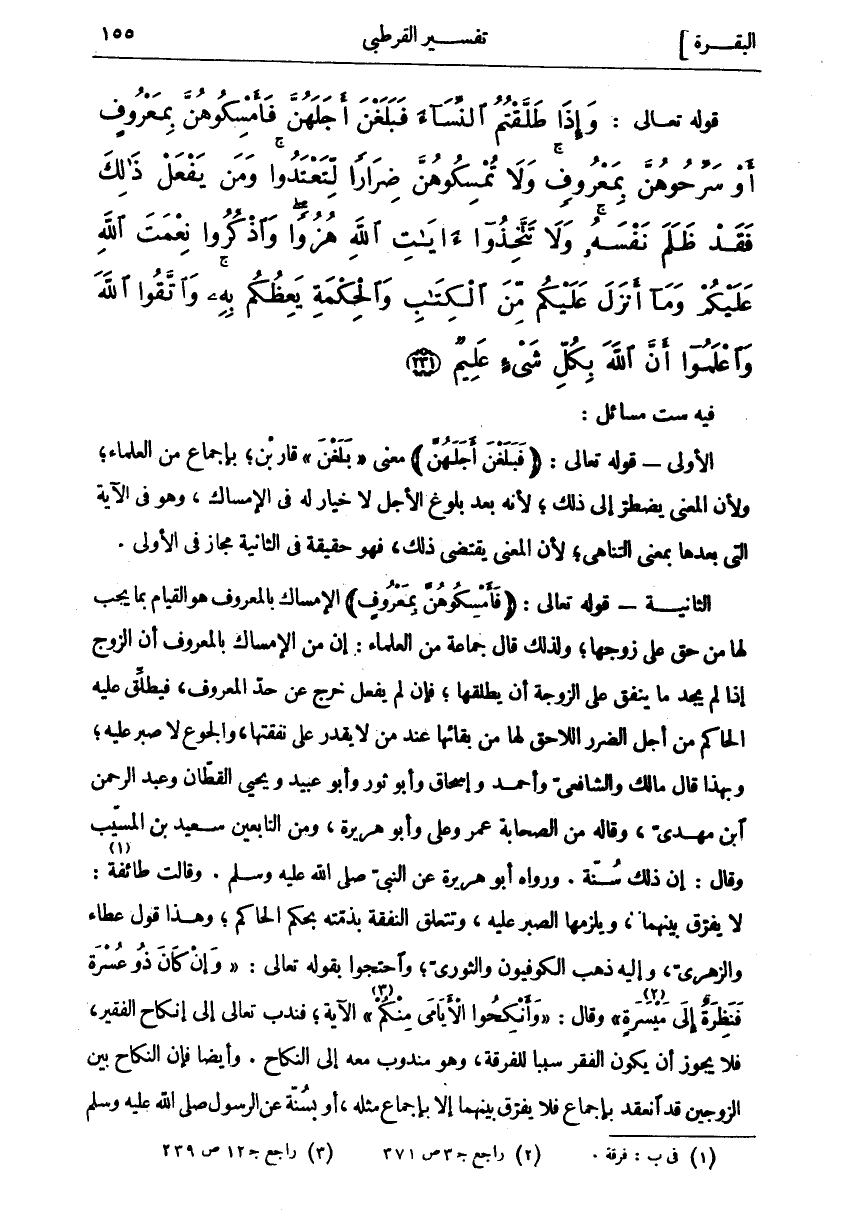 البقـــرة ] تفســـير القرطبى ١٥٥
قوله تعـالى : وَإِذَا طَلَّقْتُمُ ٱلنِّسَآءَ فَبَلَغْنَ أَجَلَهُنَّ فَأَمْسِكُوهُنَّ بِمَعْرُوفٍ
أَوْ سَرِّحُوهُنَّ بِمَعْرُوفٍۚ وَلَا تُمْسِكُوهُنَّ ضِرَارًا لِّتَعْتَدُواۚ وَمَن يَفْعَلْ ذَٰلِكَ
فَقَـدْ ظَلَمَ نَفْسَـهُۥۚ وَلَا تَتَّخِذُوٓا ءَايَـٰتِ ٱللَّهِ هُزُوًاۖ وَٱذْكُرُوا نِعْمَتَ ٱللَّهِ
عَلَيْكُمْ وَمَآ أَنزَلَ عَلَيْكُم مِّنَ ٱلْكِتَـٰبِ وَٱلْحِكْمَةِ يَعِظُكُم بِهِۦۚ وَٱتَّقُوا ٱللَّهَ
وَٱعْلَمُوٓا أَنَّ ٱللَّهَ بِكُلِّ شَىْءٍ عَلِيمٌ ﴿٢٣١﴾
فيه ست مسائل :
الأولى — قوله تعالى : ﴿فَبَلَغْنَ أَجَلَهُنَّ﴾ معنى « بَلَغْنَ » قاربْن؛ بإجماع من العلماء؛
ولأن المعنى يضطرّ إلى ذلك ؛ لأنه بعد بلوغ الأجل لا خيار له فى الإمساك ، وهو فى الآية
التى بعدها بمعنى التناهى؛ لأن المعنى يقتضى ذلك، فهو حقيقة فى الثانية مجاز فى الأولى .
الثانيـــة — قوله تعالى : ﴿فَأَمْسِكُوهُنَّ بِمَعْرُوفٍ﴾ الإمساك بالمعروف هو القيام بما يجب
لها من حق على زوجها؛ ولذلك قال جماعة من العلماء : إن من الإمساك بالمعروف أن الزوج
إذا لم يجد ما ينفق على الزوجة أن يطلقها ؛ فإن لم يفعل خرج عن حدّ المعروف، فيطلِّق عليه
الحاكم من أجل الضرر اللاحق لها من بقائها عند من لا يقدر على نفقتها، والجوع لا صبر عليه؛
وبهذا قال مالك والشافعىّ وأحمـد وإسحاق وأبو ثور وأبو عبيد ويحيى القطّان وعبد الرحمن
ٱبن مهـدىّ ، وقاله من الصحابة عمر وعلى وأبو هريرة ، ومن التابعين سـعيد بن المسَيّب
وقال : إن ذلك سُـنّة . ورواه أبو هريرة عن النبىّ صلى الله عليه وسـلم . وقالت طائفة (١) :
لا يفرّق بينهما ، ويلزمها الصبر عليه ، وتتعلق النفقة بذمّته بحكم الحاكم ؛ وهـذا قول عطاء
والزهرىّ، وإليه ذهب الكوفيون والثورىّ؛ وٱحتجوا بقوله تعالى : « وَإِنْ كَانَ ذُو عُسْرَةٍ
فَنَظِرَةٌ إِلَى مَيْسَرَةٍ (٢)» وقال : «وَأَنْكِحُوا الْأَيَامَى مِنْكُمْ (٣)» الآية؛ فندب تعالى إلى إنكاح الفقير،
فلا يجوز أن يكون الفقر سببا للفرقة، وهو مندوب معه إلى النكاح . وأيضا فإن النكاح بين
الزوجين قد ٱنعقد بإجماع فلا يفرّق بينهما إلا بإجماع مثله ، أو بسُنّة عن الرسول صلى الله عليه وسلم
(١) فى ب : فرقة . (٢) راجع جـ ٣ ص ٣٧١ (٣) راجع جـ ١٢ ص ٢٣٩